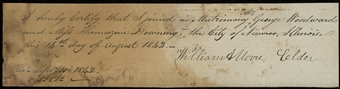 I hereby Certify that I joined in Matrimony Mr George Woodward
and Miss Thomazine Downing in the City of Nauvoo, Illinois.
this 14th day of August 1842.
William Moore. Elder
1842.